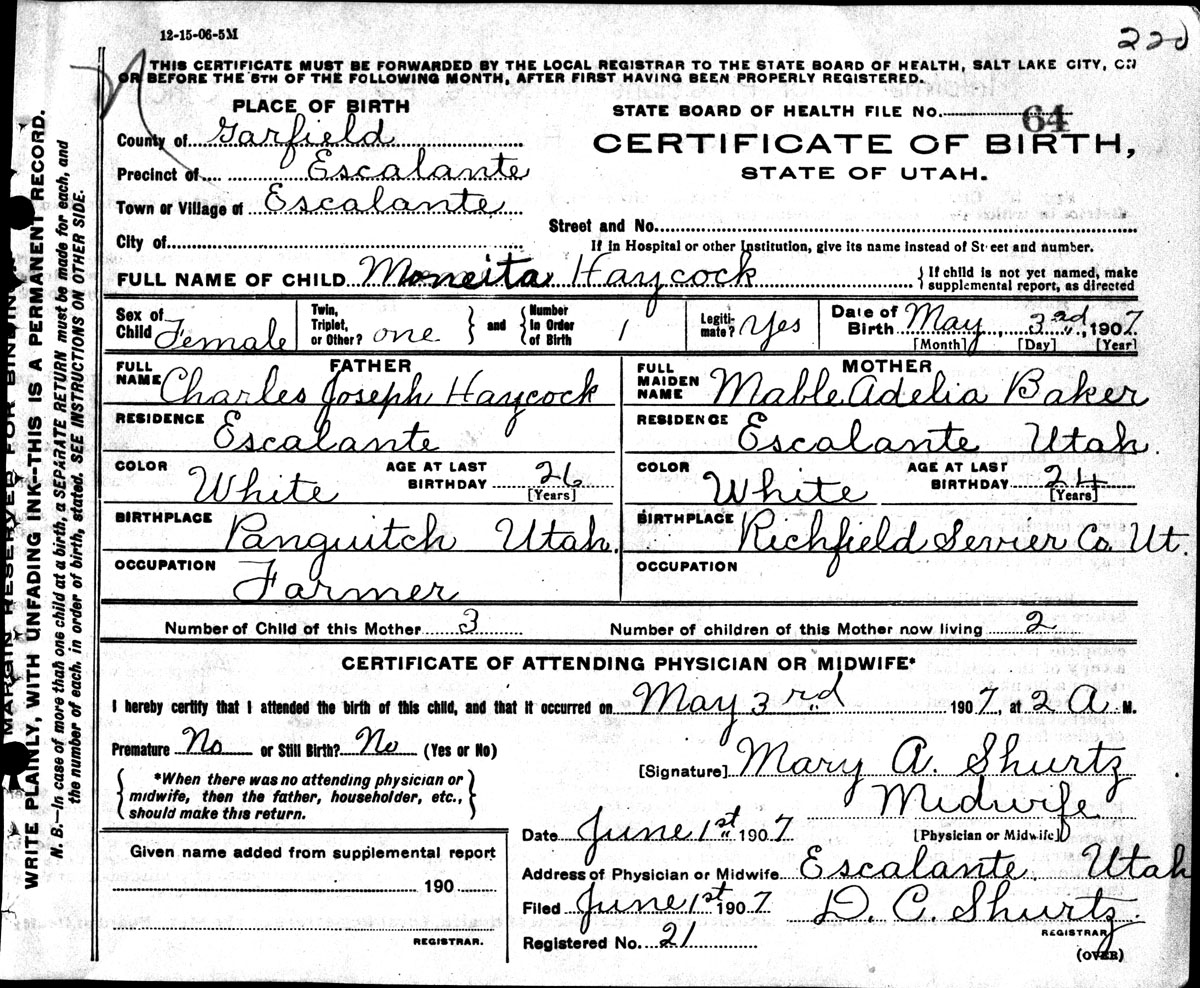 12-15-06-5M
220
THIS CERTIFICATE MUST BE FORWARDED BY THE LOCAL REGISTRAR TO THE STATE BOARD OF HEALTH, SALT LAKE CITY, ON
OR BEFORE THE 5TH OF THE FOLLOWING MONTH, AFTER FIRST HAVING BEEN PROPERLY REGISTERED.
PLACE OF BIRTH
County of Garfield
Precinct of Escalante
Town or Village of Escalante
City of
STATE BOARD OF HEALTH FILE No. 64
CERTIFICATE OF BIRTH,
STATE OF UTAH.
Street and No.
If in Hospital or other Institution, give its name instead of Street and number.
FULL NAME OF CHILD Moneita Haycock
} If child is not yet named, make
supplemental report, as directed
Sex of Child Female
Twin, Triplet, or Other? one } and { Number in Order of Birth 1
Legitimate? Yes
Date of Birth May, 3rd, 1907
[Month] [Day] [Year]
FATHER
FULL NAME Charles Joseph Haycock
RESIDENCE Escalante
COLOR White AGE AT LAST BIRTHDAY 26 [Years]
BIRTHPLACE Panguitch Utah.
OCCUPATION Farmer
MOTHER
FULL MAIDEN NAME Mable Adelia Baker
RESIDENCE Escalante Utah.
COLOR White AGE AT LAST BIRTHDAY 24 [Years]
BIRTHPLACE Richfield Sevier Co. Ut.
OCCUPATION
Number of Child of this Mother 3 Number of children of this Mother now living 2
CERTIFICATE OF ATTENDING PHYSICIAN OR MIDWIFE*
I hereby certify that I attended the birth of this child, and that it occurred on May 3rd 1907, at 2 A M.
Premature No or Still Birth? No (Yes or No)
{ *When there was no attending physician or
midwife, then the father, householder, etc.,
should make this return. }
[Signature] Mary A. Shurtz
Midwife
Date June 1st 1907 [Physician or Midwife]
Address of Physician or Midwife Escalante Utah
Filed June 1st 1907 D. C. Shurtz.
REGISTRAR
Registered No. 21
(OVER)
Given name added from supplemental report
190
REGISTRAR.
MARGIN RESERVED FOR BINDING
WRITE PLAINLY, WITH UNFADING INK--THIS IS A PERMANENT RECORD.
N. B.—In case of more than one child at a birth, a SEPARATE RETURN must be made for each, and
the number of each, in order of birth, stated. SEE INSTRUCTIONS ON OTHER SIDE.